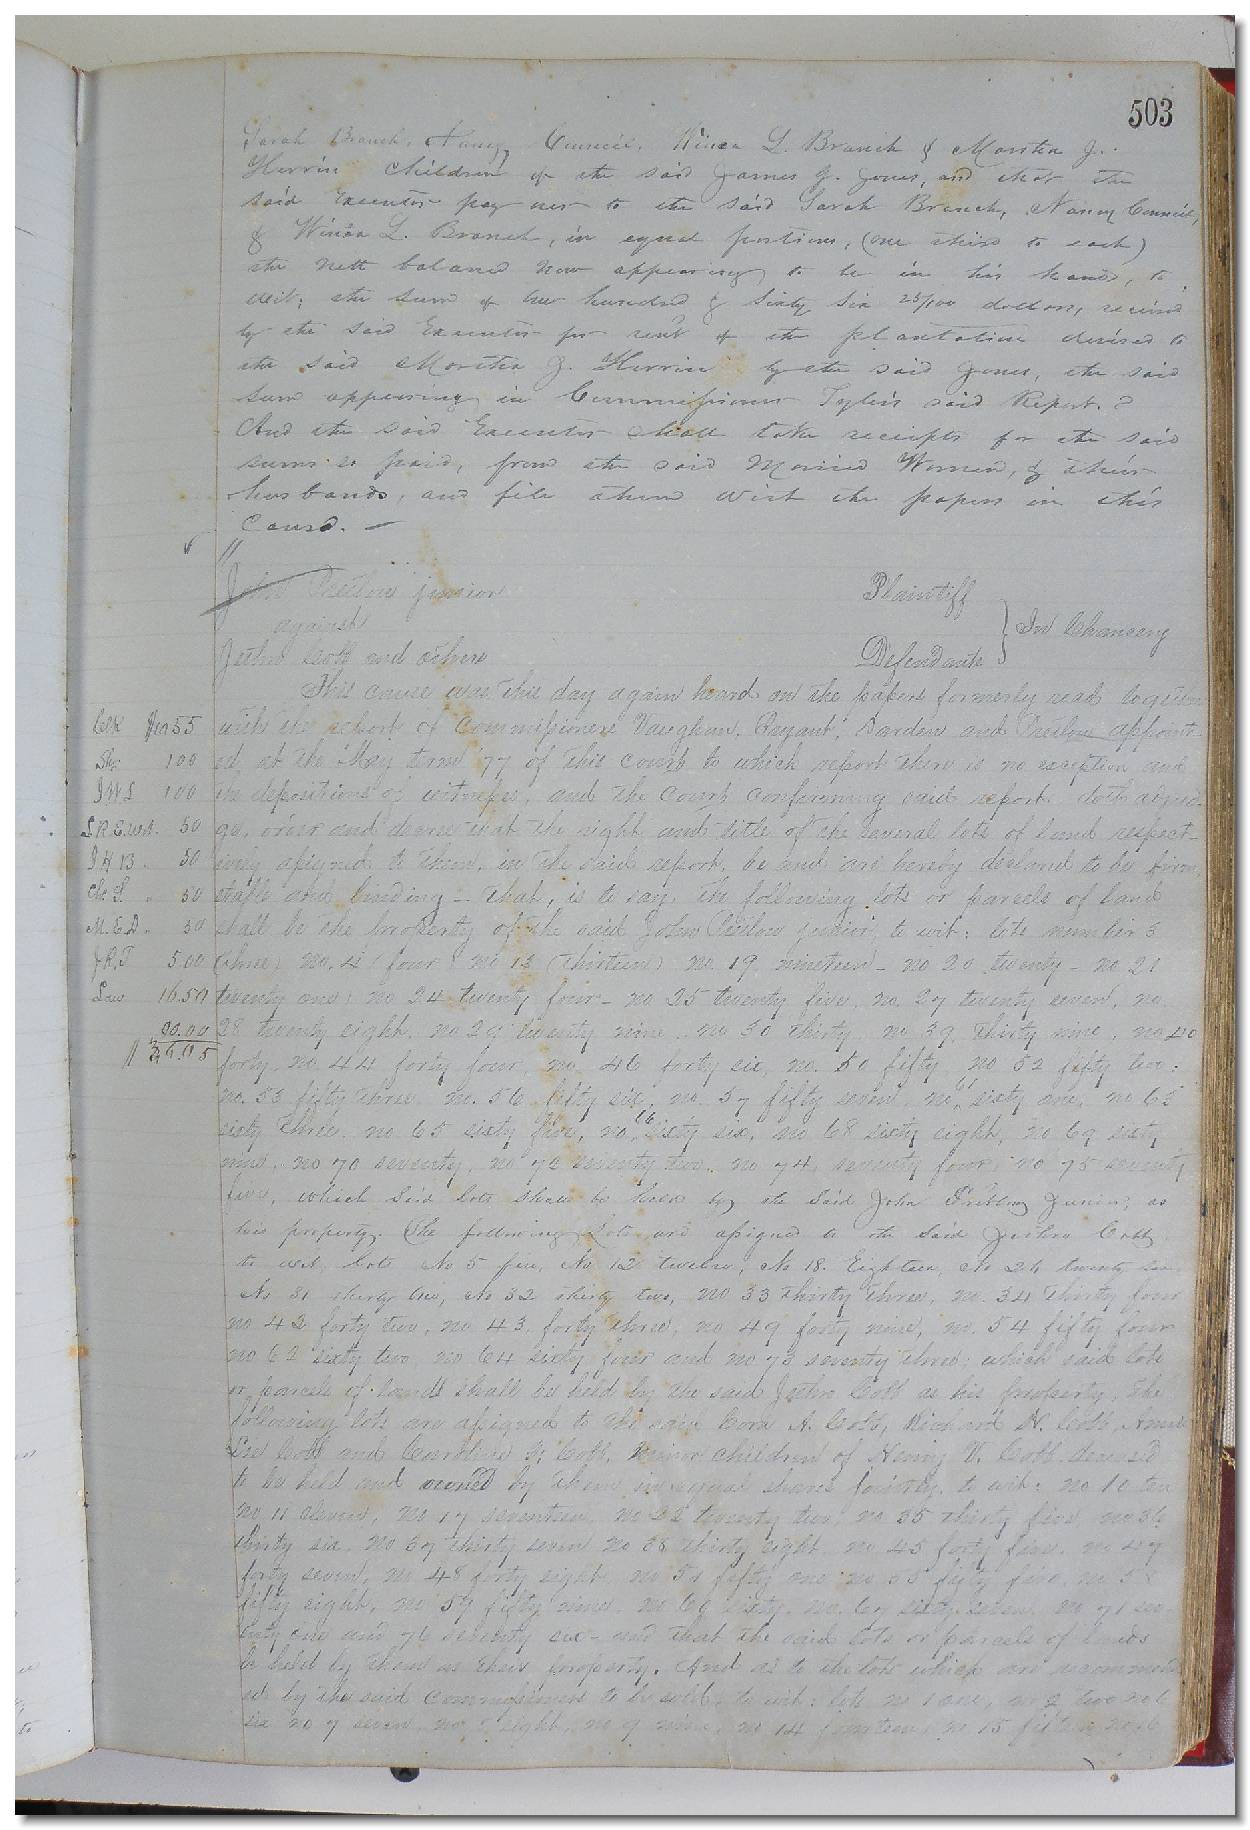 503
Sarah Branch, Nancy Council, Winea L. Branch & Martha J.
Herrin children of the said James J. Jones, and that the
said Executor pay over to the said Sarah Branch, Nancy Council,
& Winea L. Branch, in equal portions, (one third to each)
the nett balance now appearing to be in his hands, to
wit; the sum of two hundred & sixty six 25/100 dollars, received
by the said Executor for rent of the plantation devised to
the said Martha J. Herrin by the said Jones, the said
sum appearing in Commissioner Tyler's said Report.
And the said Executor shall take receipts for the said
sums so paid, from the said Married Women, & their
husbands, and file them with the papers in this
Cause.
John Pretlow junior Plaintiff
against In Chancery
Jethro Cobb and others Defendants
This cause was this day again heard on the papers formerly read together
with the report of Commissioners Vaughan, Bryant, Darden and Pretlow appoint-
ed at the May term '77 of this Court to which report there is no exception and
the depositions of witnesses, and the Court confirming said report doth adjud-
ge, order and decree that the right and title of the several lots of land respect-
ively assigned to them, in the said report, be and are hereby declared to be firm,
stable and binding - That, is to say, the following lots or parcels of land
shall be the property of the said John Pretlow junior, to wit: lots number 3
(three) no. 4 (four) no 13 (thirteen) no. 19 nineteen - no 20 twenty - no 21
twenty one, no 24 twenty four - no 25 twenty five, no. 27 twenty seven, no.
28 twenty eight, no 29 twenty nine, no 30 thirty no 39 thirty nine, no 40
forty, no. 44 forty four, no. 46 forty six, no. 50 fifty, no 52 fifty two,
no. 53 fifty three, no. 56 fifty six, no. 57 fifty seven, no 61 sixty one, no 63
sixty three, no. 65 sixty five, no. 66 sixty six, no 68 sixty eight, no 69 sixty
nine, no 70 seventy, no 72 seventy two, no 74 seventy four, no 75 seventy
five, which said lots shall be held by the said John Pretlow Junior, as
his property. The following Lots are assigned to the said Jethro Cobb,
to wit, lots No 5 five, No 12 twelve, No 18. Eighteen, No 26 twenty six
No 31 thirty one, No 32 thirty two, no 33 thirty three, no. 34 thirty four
no 42 forty two, no 43 forty three, no 49 forty nine, no. 54 fifty four
no 62 sixty two, no 64 sixty four and no 73 seventy three; which said lots
or parcels of lands shall be held by the said Jethro Cobb as his property. The
following lots are assigned to the said Cora A. Cobb, Richard H. Cobb,
Cobb and Caroline Cobb, minor children of Henry V. Cobb deceased
to be held and owned by them in equal shares jointly, to wit: no 10 ten
no 11 eleven, no 17 seventeen, no 22 twenty two, no 35 thirty five, no 36
thirty six, no 37 thirty seven no 38 thirty eight, no 45 forty five, no 47
forty seven, no 48 forty eight, no 51 fifty one no 55 fifty five, no 58
fifty eight, no 59 fifty nine, no 60 sixty, no. 67 sixty seven, no 71 sev-
enty one and 76 seventy six - and that the said lots or parcels of lands
be held by them as their property. And as to the lots which are recommend
ed by the said Commissioners to be sold, to wit: lots no 1 one, no 2 two no 6
six no 7 seven, no 8 eight, no 9 nine, no 14 fourteen, no 15 fifteen no 16
Clk 55
Shr 100
J W S 100
50
J H B 50
50
M. E. D. 50
J R T 500
Law 16.50